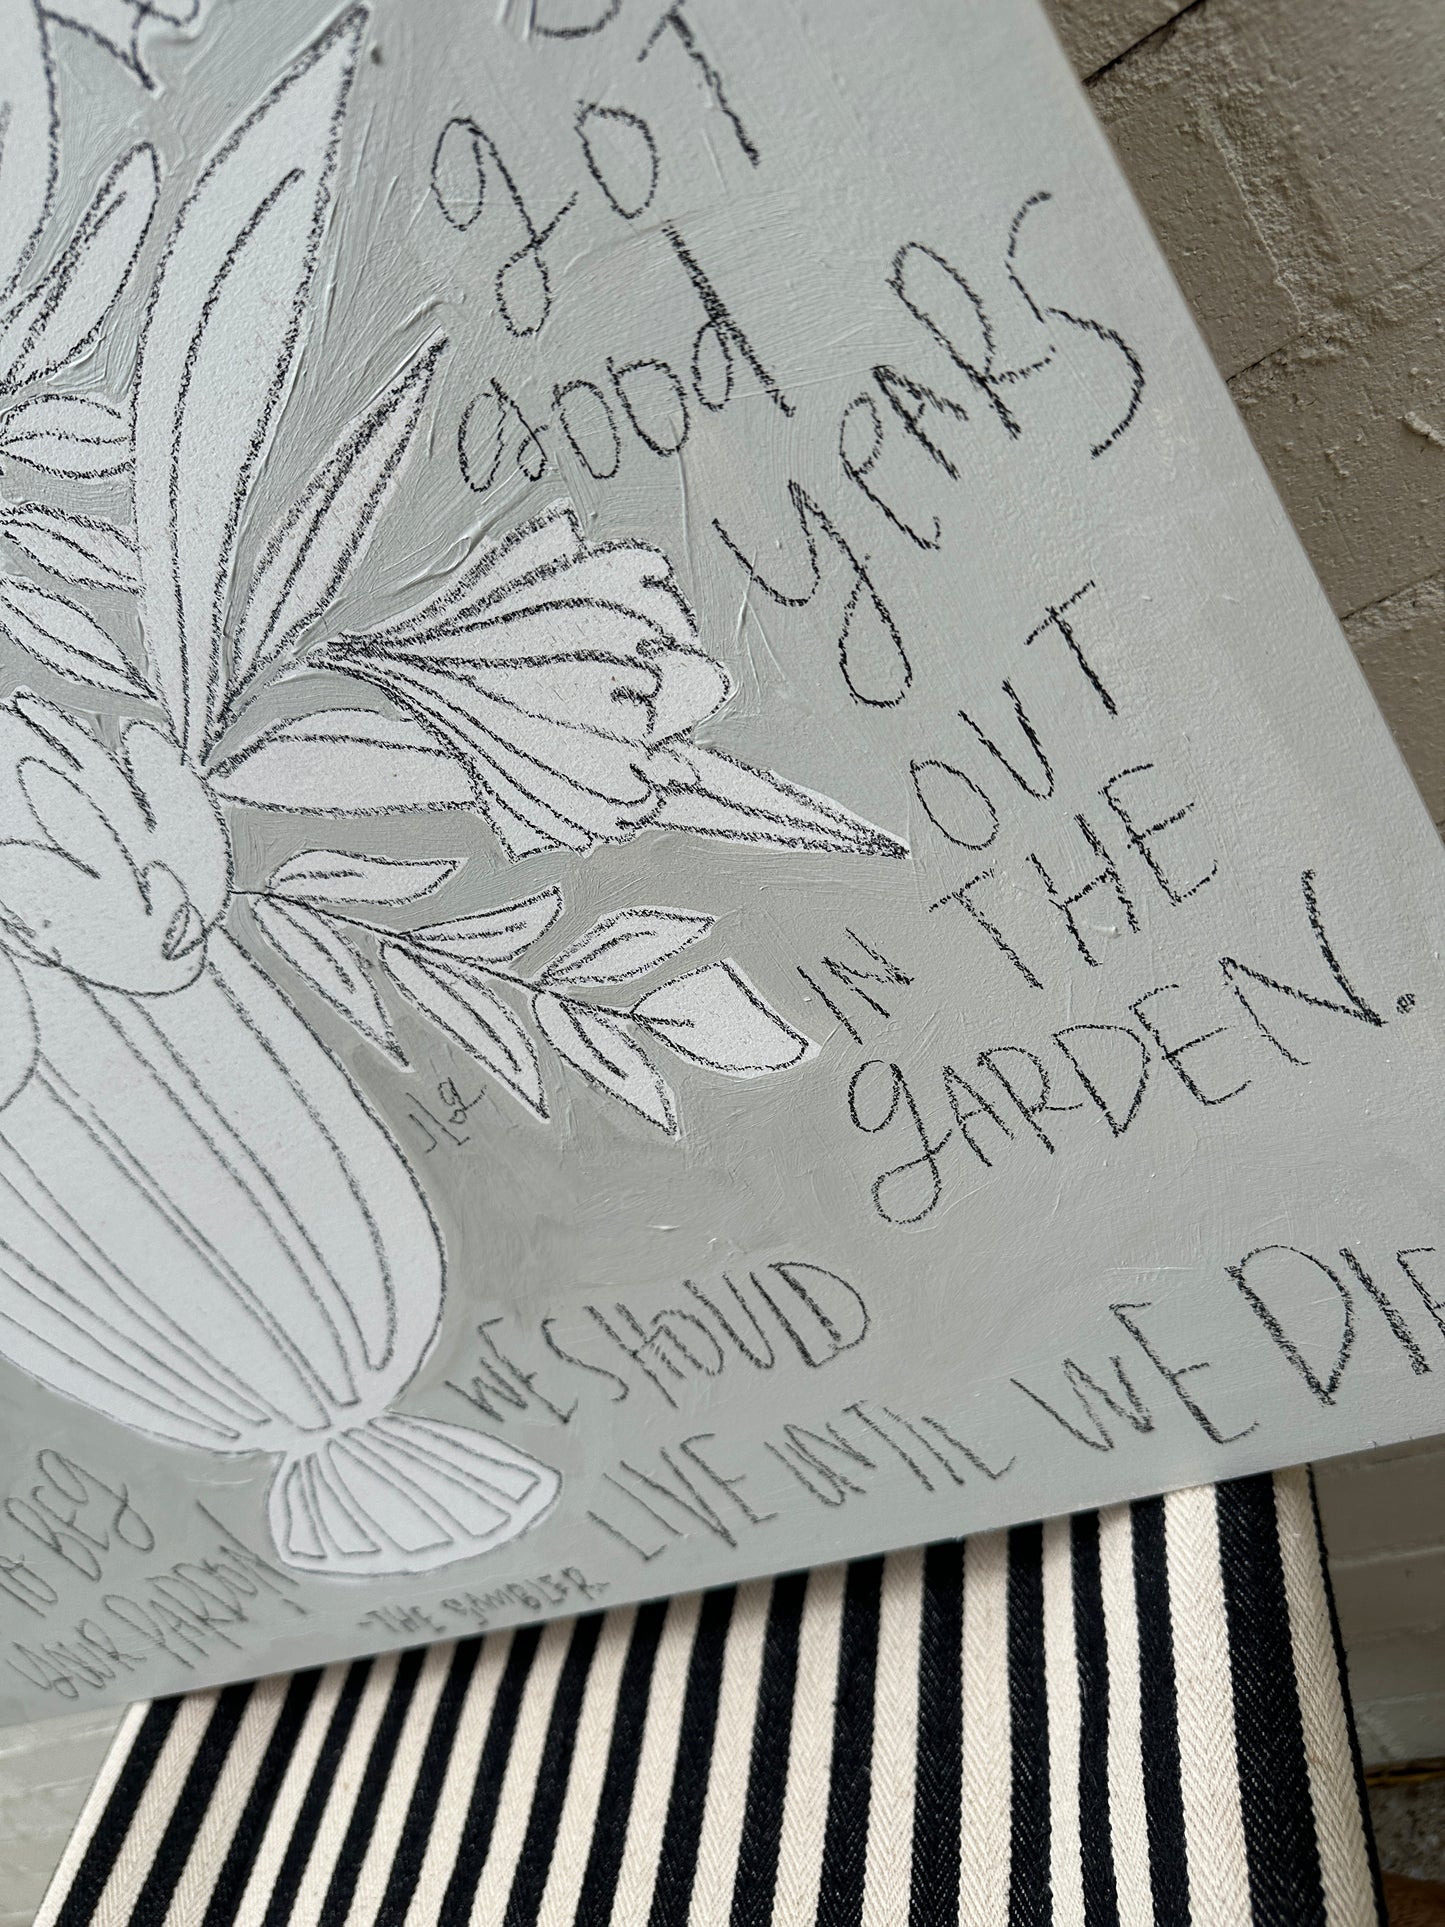 got
good
years
OUT
IN THE
gARDEN.
WE SHOULD
LIVE UNTIL WE DIE
TO BEg
yOUR PARDON!
-THE SYMBLER-